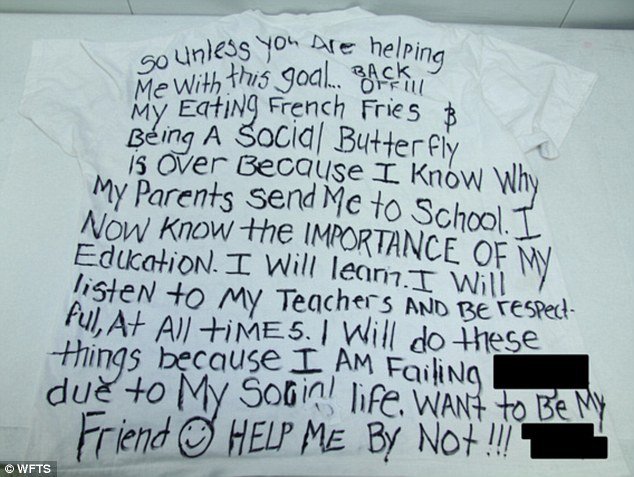 So Unless you Are helping
Me With this goal... BACK OFF!!!
My EATiNg FrencH Fries &
Being A Social Butterfly
is Over Because I Know Why
My Parents Send Me to School. I
Now Know the IMPORTANCE OF My
Education. I Will learn. I Will
listeN to My Teachers AND Be respect-
ful, At All tiMES. I Will do these
things because I AM FAiliNg
due to My Social life. WANt to Be My
Friend ☺ HELP ME By Not!!!
© WFTS